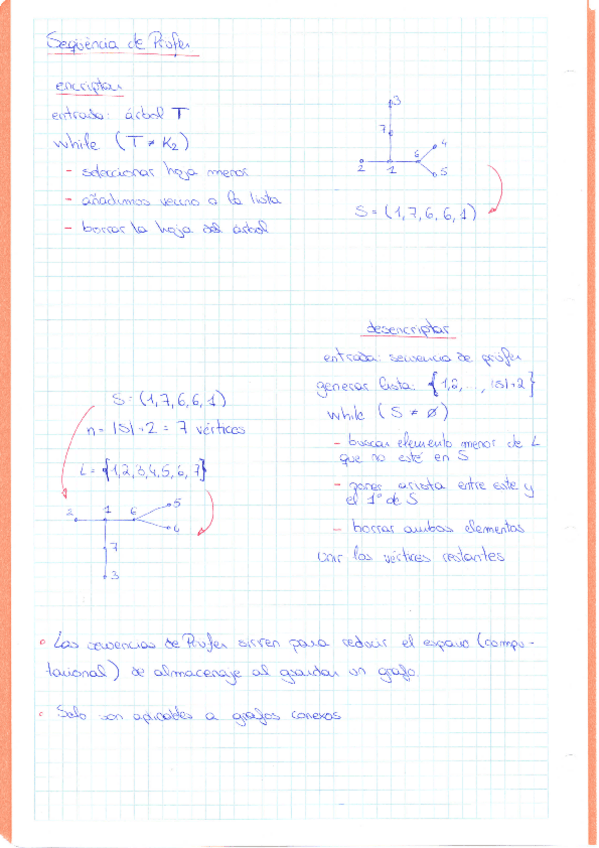 Sequència de Prüfer
encriptar
entrada: árbol T
while (T ≠ K₂)
- seleccionar hoja menor
- añadimos vecino a la lista
- borrar la hoja del árbol
3
7
2 1 6 4
5
S = (1,7,6,6,1)
desencriptar
entrada: secuencia de prüfer
generar lista: {1,2,..., |S|+2}
while (S ≠ ø)
- buscar elemento menor de L
que no esté en S
- poner arista entre este y
el 1º de S
- borrar ambos elementos
unir los vértices restantes
S = (1,7,6,6,1)
n = |S|+2 = 7 vértices
L = {1,2,3,4,5,6,7}
2 1 6 5
6
7
3
• Las secuencias de Prüfer sirven para reducir el espacio (compu-
tacional) de almacenaje al guardar un grafo.
• Solo son aplicables a grafos conexos